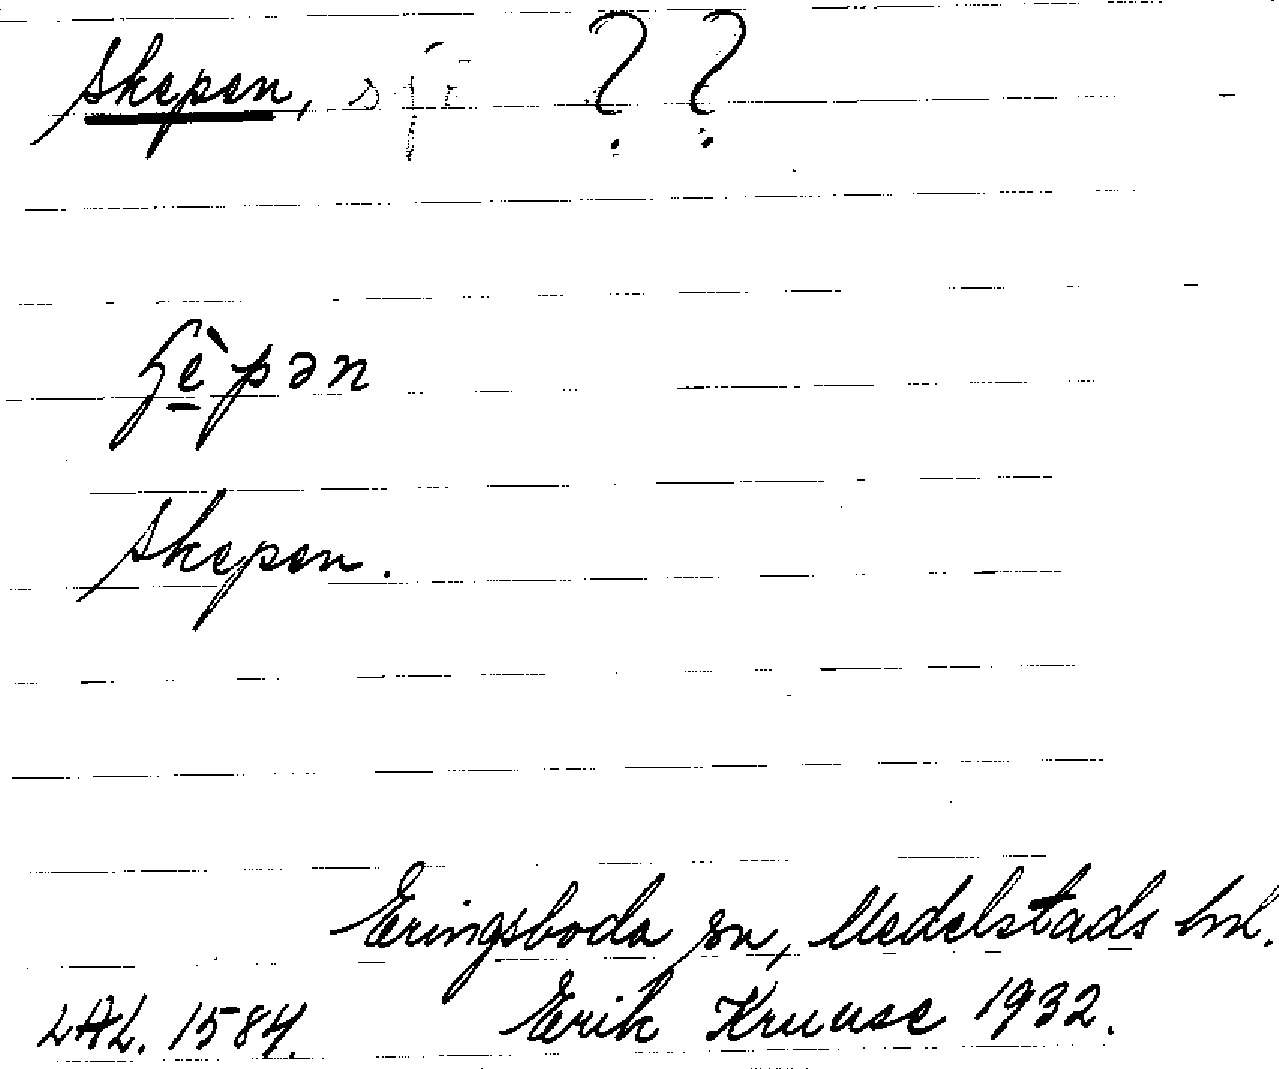 Skepen, sjö ??
ʃèpən
Skepen.
Eringsboda sn, Medelstads hd.
LAL. 1584. Erik Kruuse 1932.